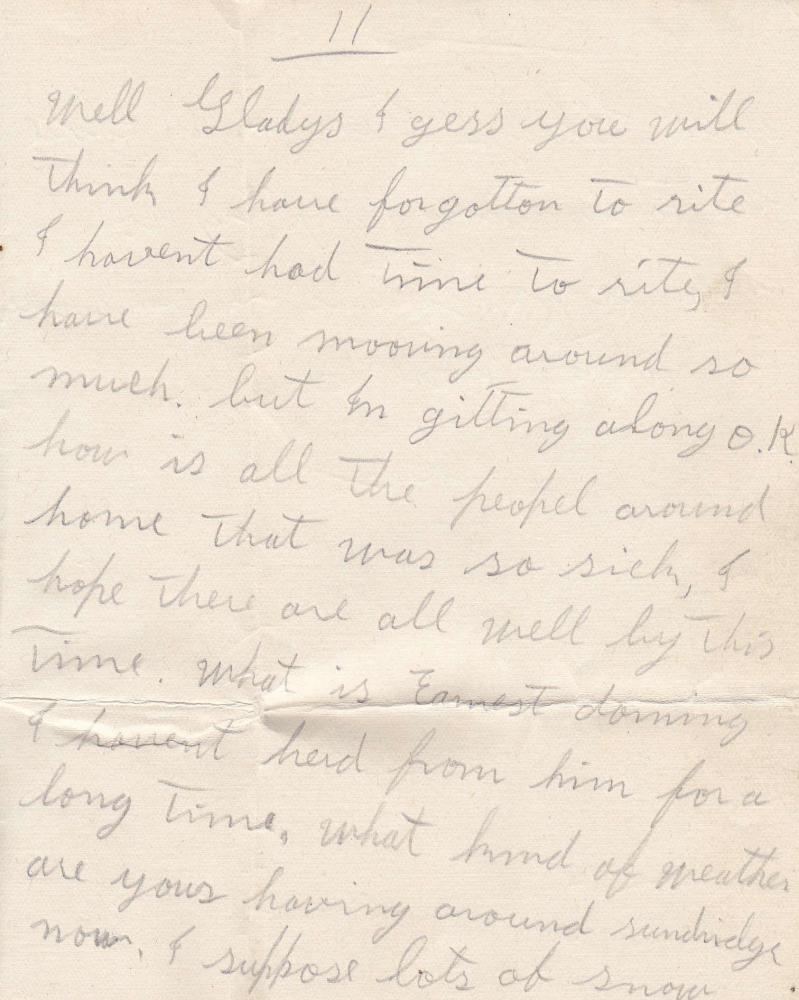 11
Well Gladys I gess you will
think I have forgotton to rite
I havent had time to rite, I
have been mooving around so
much. but Im gitting along O.K.
how is all the peopel around
home that was so sick, I
hope there are all well by this
time. What is Earnest doming
I havent herd from him for a
long time. What kind of weather
are yous having around sundridge
now, I suppose lots of snow